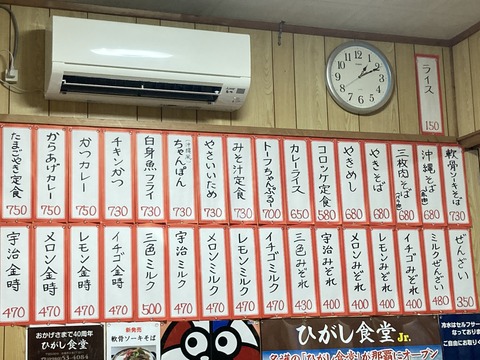 ライス
150
軟骨ソーキそば
730
沖縄そば
680
三枚肉そば
680
やきそば
680
やきめし
680
コロッケ定食
580
カレーライス
650
トーフちゃんぷるー
700
みそ汁定食
730
やさいいため
730
沖縄風
ちゃんぽん
730
白身魚フライ
730
チキンかつ
730
かつカレー
750
からあげカレー
750
たまごやき定食
750
ぜんざい
350
ミルクぜんざい
480
イチゴみぞれ
400
レモンみぞれ
400
メロンみぞれ
400
宇治みぞれ
400
三色みぞれ
430
イチゴミルク
470
レモンミルク
470
メロンミルク
470
宇治ミルク
470
三色ミルク
500
イチゴ金時
470
レモン金時
470
メロン金時
470
宇治金時
470
おかげさまで40周年
ひがし食堂
新発売
軟骨ソーキそば
ひがし食堂Jr.
名護の「ひがし食堂」が那覇にオープン